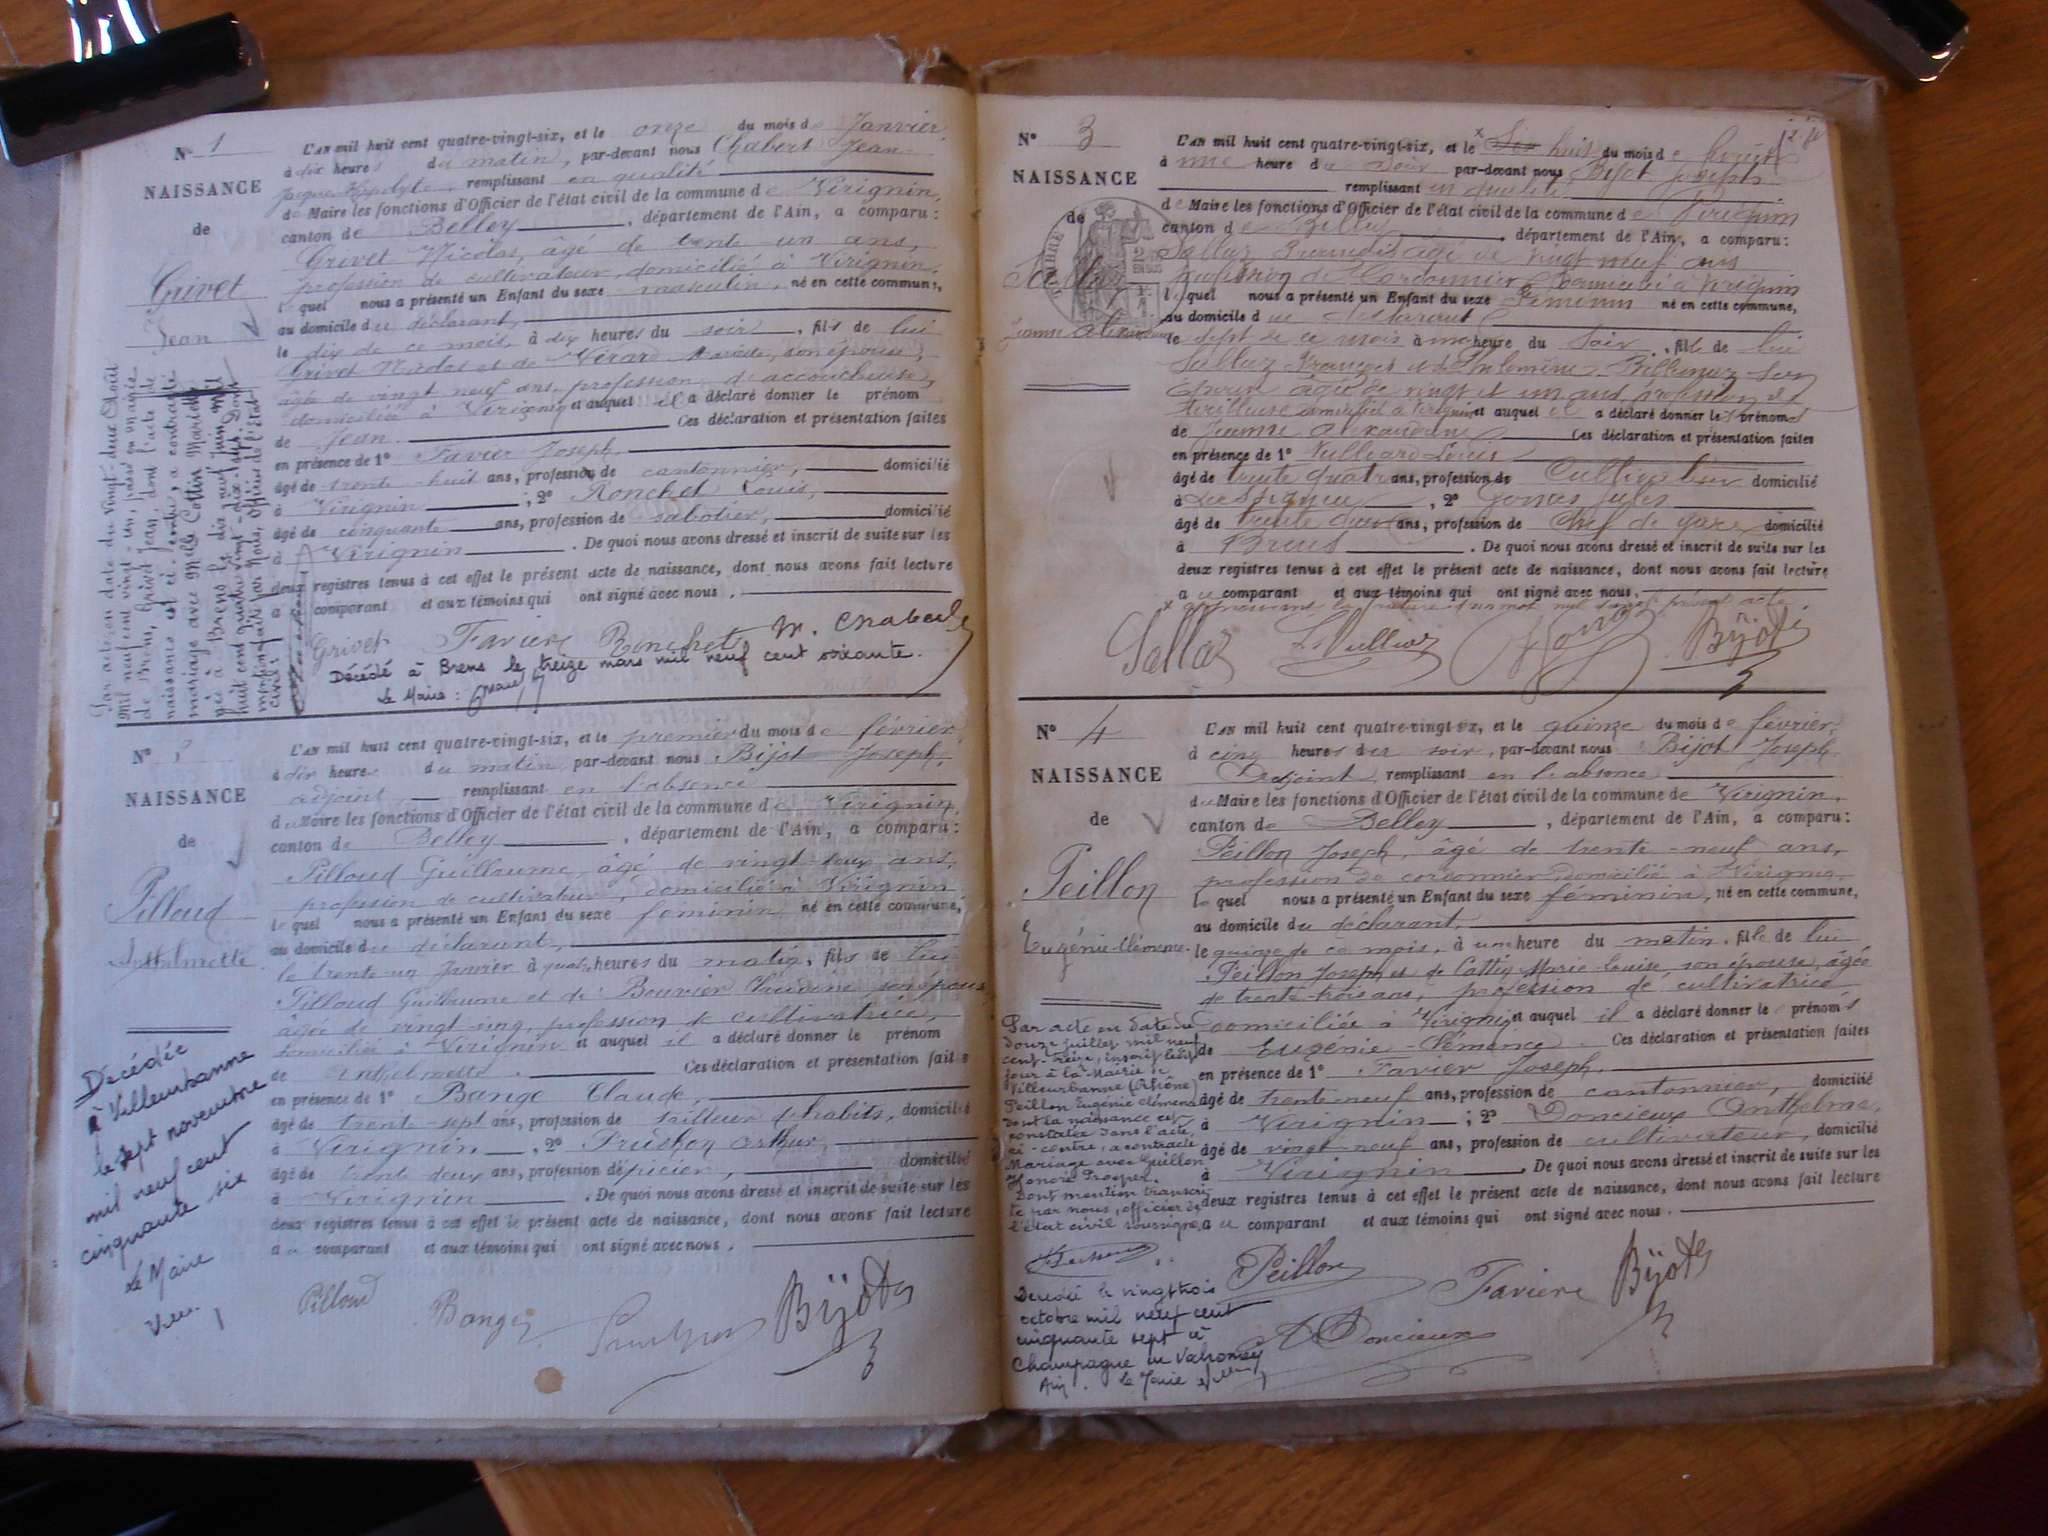 N° 1
NAISSANCE
de
Grivet
Jean
L'AN mil huit cent quatre-vingt-six, et le onze du mois de Janvier
à dix heures du matin, par-devant nous Chabert Jean
remplissant en qualité
de Maire les fonctions d'Officier de l'état civil de la commune de Virignin,
canton de Belley, département de l'Ain, a comparu :
Grivet Nicolas, âgé de trente un ans,
profession de cultivateur, domicilié à Virignin,
lequel nous a présenté un Enfant du sexe masculin, né en cette commune,
au domicile du déclarant,
le dix de ce mois, à dix heures du soir, fils de lui
Grivet Nicolas et de Mariette, son épouse,
âgée de vingt neuf ans, profession de accoucheuse,
domiciliée à Virignin et auquel il a déclaré donner le prénom
de Jean. Ces déclaration et présentation faites
en présence de 1° Favier Joseph,
âgé de trente-huit ans, profession de cantonnier, domicilié
à Virignin ; 2° Ronchet Louis,
âgé de cinquante ans, profession de sabotier, domicilié
à Virignin. De quoi nous avons dressé et inscrit de suite sur les
deux registres tenus à cet effet le présent acte de naissance, dont nous avons fait lecture
a comparant et aux témoins qui ont signé avec nous.
Grivet Faviere Ronchet M. Chabert
Décédé à Brens le treize mars mil neuf cent soixante.
Le Maire :
Par acte en date du vingt-deux Août
mil neuf cent vingt-un, passé en mairie
de Brens, Grivet Jean, dont l'acte de
naissance est ci-contre, a contracté
mariage avec Melle Cottin Mariette
née à Brens le dix neuf juin mil
huit cent quatre vingt-dix huit. Dont
mention faite par Nous, officier de l'Etat
civil.
N°
NAISSANCE
de
Pilloud
Anthelmette
L'AN mil huit cent quatre-vingt-six, et le premier du mois de février
à dix heures du matin par-devant nous Bijot Joseph,
adjoint, remplissant en l'absence
du Maire les fonctions d'Officier de l'état civil de la commune de Virignin,
canton de Belley, département de l'Ain, a comparu :
Pilloud Guillaume, âgé de vingt-deux ans,
profession de cultivateur, domicilié à Virignin
lequel nous a présenté un Enfant du sexe féminin né en cette commune,
au domicile du déclarant,
le trente-un Janvier à quatre heures du matin, fils de lui
Pilloud Guillaume et de Bouvier Claudine, son épouse
âgée de vingt-cinq, profession de cultivatrice,
domiciliée à Virignin et auquel il a déclaré donner le prénom
de Anthelmette. Ces déclaration et présentation faites
en présence de 1° Bange Claude,
âgé de trente-sept ans, profession de tailleur d'habits, domicilié
à Virignin, 2° Arthur,
âgé de trente deux ans, profession d'épicier, domicilié
à Virignin. De quoi nous avons dressé et inscrit de suite sur les
deux registres tenus à cet effet le présent acte de naissance, dont nous avons fait lecture
au comparant et aux témoins qui ont signé avec nous.
Pilloud Bange Bijot
Décédée
à Villeurbanne
le sept novembre
mil neuf cent
cinquante six
Le Maire
N° 3
NAISSANCE
de
Sallaz
Jeanne Alexandrine
L'AN mil huit cent quatre-vingt-six, et le huit du mois de février
à une heure du soir par-devant nous Bijot Joseph
remplissant en qualité
de Maire les fonctions d'Officier de l'état civil de la commune de Virignin
canton de Belley, département de l'Ain, a comparu :
Sallaz François âgé de vingt neuf ans
profession de Cordonnier domicilié à Virignin
lequel nous a présenté un Enfant du sexe Féminin né en cette commune,
au domicile du déclarant
le sept de ce mois à une heure du Soir, fille de lui
Sallaz François et de Philomène son
épouse âgée de vingt et un ans, profession de
domiciliée à Virignin et auquel il a déclaré donner les prénoms
de Jeanne Alexandrine Ces déclaration et présentation faites
en présence de 1° Vulliard Louis
âgé de trente quatre ans, profession de Cultivateur domicilié
à , 2° Jules
âgé de trente deux ans, profession de Chef de gare domicilié
à Brens. De quoi nous avons dressé et inscrit de suite sur les
deux registres tenus à cet effet le présent acte de naissance, dont nous avons fait lecture
au comparant et aux témoins qui ont signé avec nous.
Sallaz Bijot
N° 4
NAISSANCE
de
Peillon
Eugénie-Clémence
L'AN mil huit cent quatre-vingt-six, et le quinze du mois de février,
à cinq heures du soir, par-devant nous Bijot Joseph,
adjoint, remplissant en l'absence
du Maire les fonctions d'Officier de l'état civil de la commune de Virignin,
canton de Belley, département de l'Ain, a comparu :
Peillon Joseph, âgé de trente-neuf ans,
profession de cordonnier domicilié à Virignin,
lequel nous a présenté un Enfant du sexe féminin, né en cette commune,
au domicile du déclarant,
le quinze de ce mois, à une heure du matin, fille de lui
Peillon Joseph et de Cottin Marie Louise, son épouse, âgée
de trente-trois ans, profession de cultivatrice
domiciliée à Virignin et auquel il a déclaré donner le prénoms
de Eugénie-Clémence. Ces déclaration et présentation faites
en présence de 1° Favier Joseph,
âgé de trente neuf ans, profession de cantonnier, domicilié
à Virignin ; 2° Doncieux Anthelme,
âgé de vingt-neuf ans, profession de cultivateur, domicilié
à Virignin. De quoi nous avons dressé et inscrit de suite sur les
deux registres tenus à cet effet le présent acte de naissance, dont nous avons fait lecture
au comparant et aux témoins qui ont signé avec nous.
Peillon Faviere Bijot
A Doncieux
Par acte en date du
douze juillet mil neuf
cent-treize, inscrit ledit
jour à la Mairie de
Villeurbanne (Rhône)
Peillon Eugénie Clémence
dont la naissance est
constatée dans l'acte
ci-contre, a contracté
Mariage avec Guillon
Honoré Prosper.
Dont mention transcri-
te par nous, officier de
l'état civil soussigné,
Décédée le vingt trois
octobre mil neuf cent
cinquante sept à
Champagne en Valromey
Ain. Le Maire